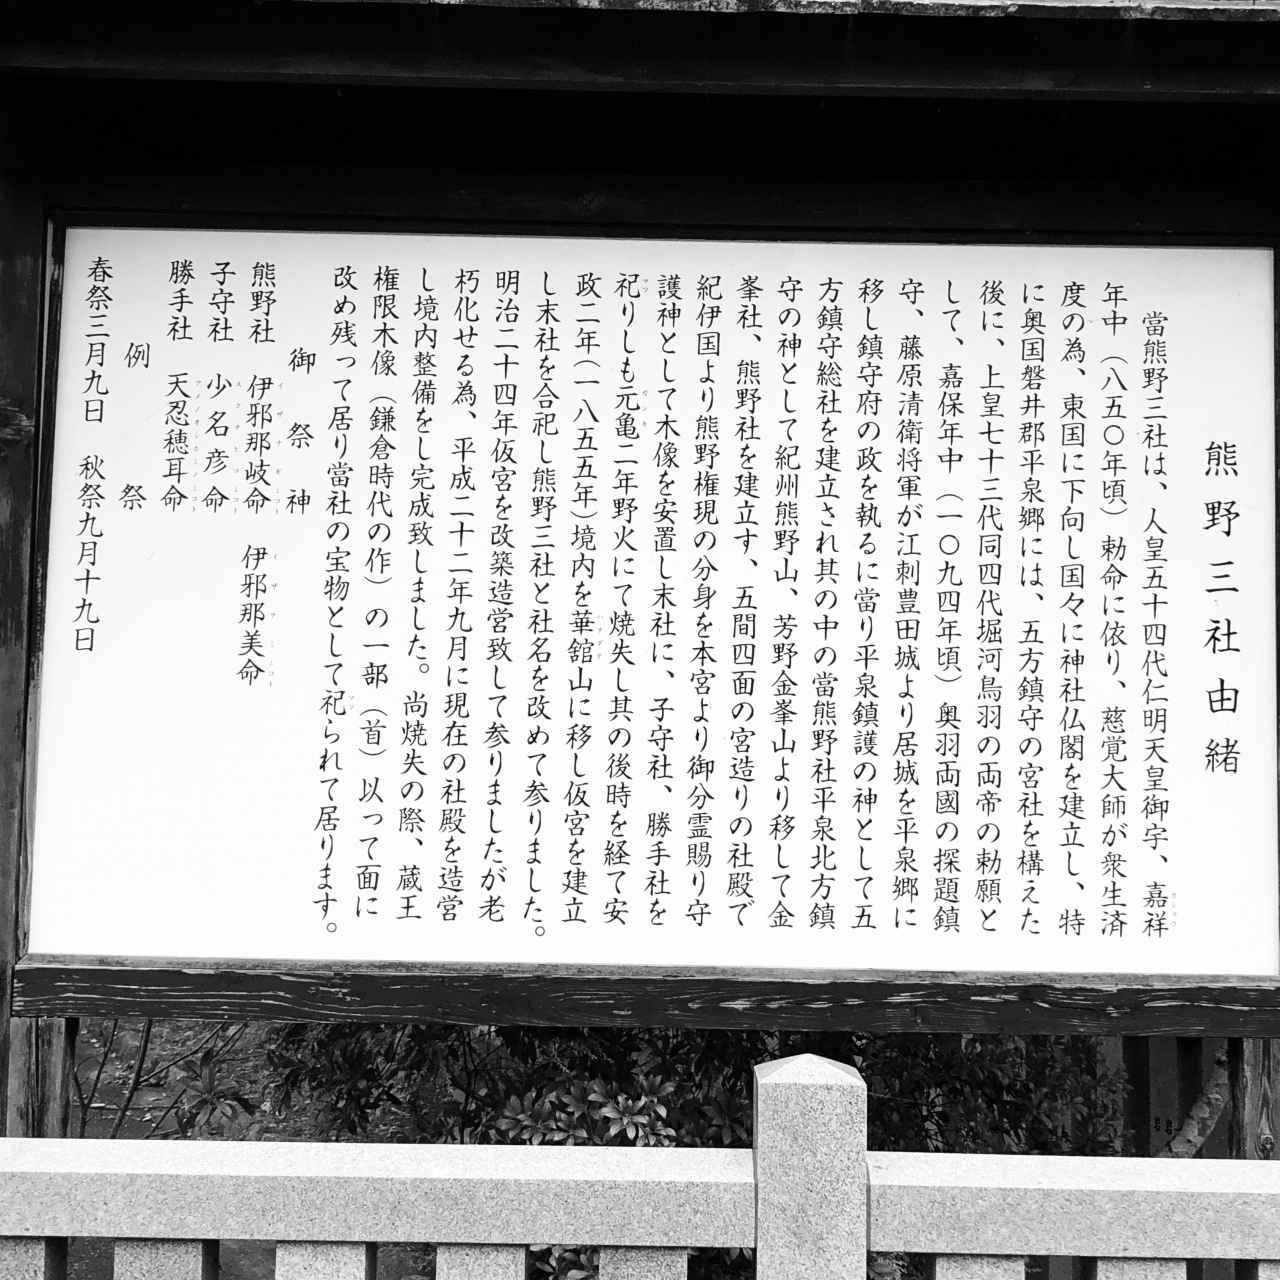 熊野三社由緒
當熊野三社は、人皇五十四代仁明天皇御宇、嘉祥
年中（八五〇年頃）勅命に依り、慈覚大師が衆生済
度の為、東国に下向し国々に神社仏閣を建立し、特
に奥国磐井郡平泉郷には、五方鎮守の宮社を構えた
後に、上皇七十三代同四代堀河鳥羽の両帝の勅願と
して、嘉保年中（一〇九四年頃）奥羽両國の探題鎮
守、藤原清衡将軍が江刺豊田城より居城を平泉郷に
移し鎮守府の政を執るに當り平泉鎮護の神として五
方鎮守総社を建立され其の中の當熊野社平泉北方鎮
守の神として紀州熊野山、芳野金峯山より移して金
峯社、熊野社を建立す、五間四面の宮造りの社殿で
紀伊国より熊野権現の分身を本宮より御分霊賜り守
護神として木像を安置し末社に、子守社、勝手社を
祀りしも元亀二年野火にて焼失し其の後時を経て安
政二年（一八五五年）境内を華舘山に移し仮宮を建立
し末社を合祀し熊野三社と社名を改めて参りました。
明治二十四年仮宮を改築造営致して参りましたが老
朽化せる為、平成二十二年九月に現在の社殿を造営
し境内整備をし完成致しました。尚焼失の際、蔵王
権限木像（鎌倉時代の作）の一部（首）以って面に
改め残って居り當社の宝物として祀られて居ります。
御祭神
熊野社 伊邪那岐命 伊邪那美命
子守社 少名彦命
勝手社 天忍穂耳命
例祭
春祭三月九日 秋祭九月十九日